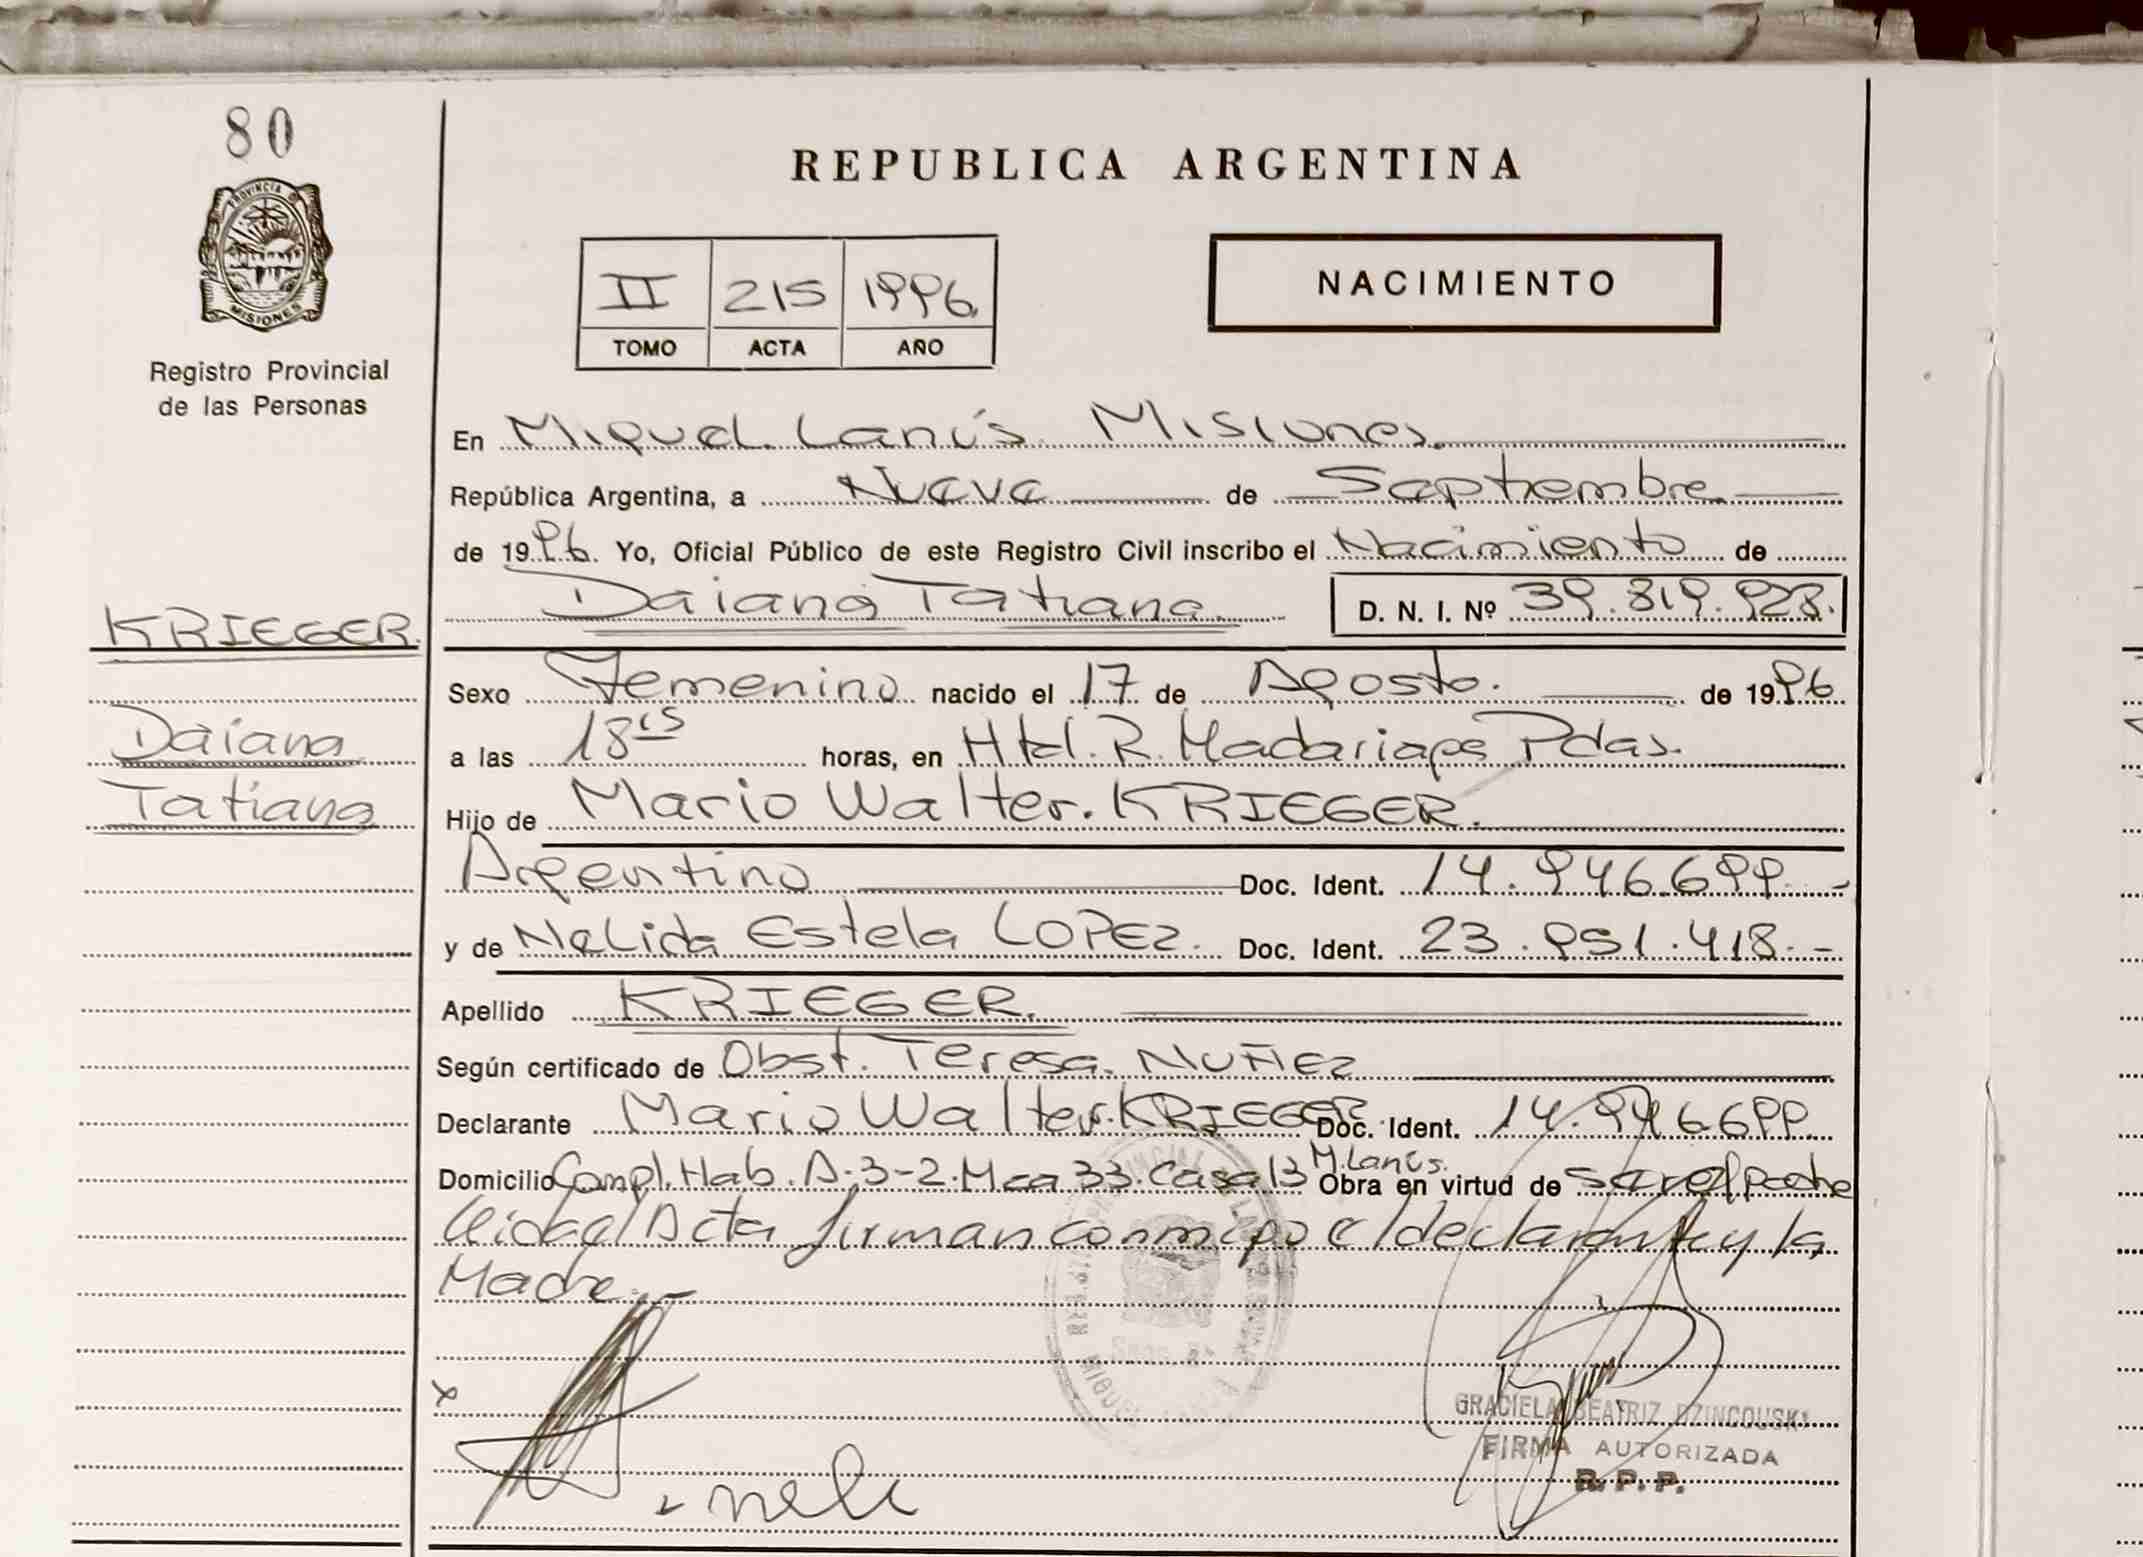 80
REPUBLICA ARGENTINA
PROVINCIA DE
MISIONES
Registro Provincial
de las Personas
II 215 1996
TOMO ACTA AÑO
NACIMIENTO
En Miguel Lanús Misiones.
República Argentina, a Nueve de Septiembre
de 1996. Yo, Oficial Público de este Registro Civil inscribo el Nacimiento de
Daiana Tatiana D. N. I. Nº 39.819.923.
KRIEGER.
Daiana
Tatiana
Sexo Femenino nacido el 17 de Agosto. de 1996
a las 18 15 horas, en Htal. R. Madariaga Pdas.
Hijo de Mario Walter. KRIEGER.
Argentino Doc. Ident. 14.946.699.-
y de Nelida Estela LOPEZ. Doc. Ident. 23.951.418.-
Apellido KRIEGER.
Según certificado de Obst. Teresa. NUÑEZ
Declarante Mario Walter. KRIEGER Doc. Ident. 14.946.699.
Domicilio Compl. Hab. A-3-2. Mza 33. Casa 13 M. Lanús. Obra en virtud de ser el padre
leida el Acta firman conmigo el declarante y la
Madre.-
GRACIELA BEATRIZ DZINCOUSKI
FIRMA AUTORIZADA
R. P. P.